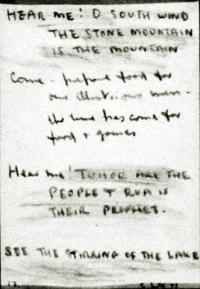 HEAR ME! O SOUTH WIND
THE STONE MOUNTAIN
IS THE MOUNTAIN
Come - prepare food for
our illustrious men -
the time has come for
food + games
Hear me! TUMOR ARE THE
PEOPLE + RUA IS
THEIR PROPHET.
SEE THE STIRRING OF THE LAKE